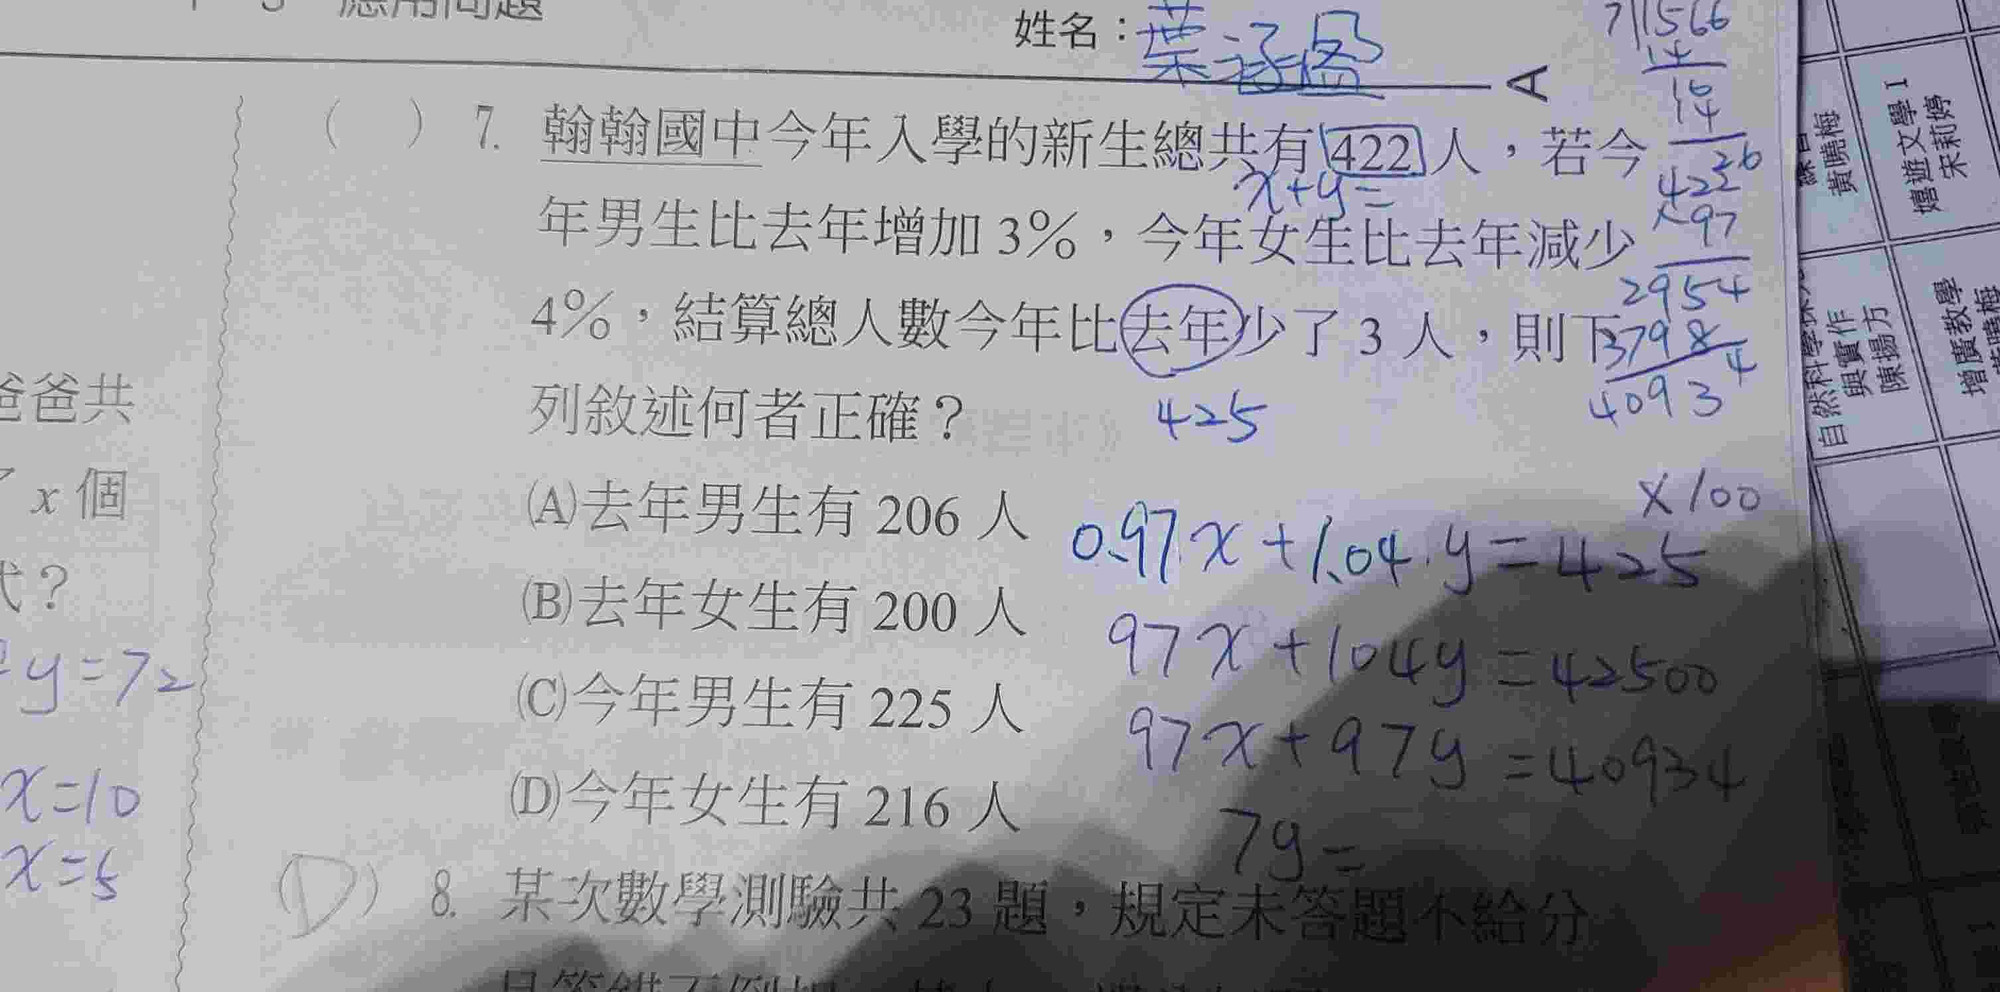 應用問題
姓名：葉涵盈
A
( ) 7. 翰翰國中今年入學的新生總共有422人，若今
x+y=
年男生比去年增加3%，今年女生比去年減少
4%，結算總人數今年比去年少了3人，則下
列敘述何者正確？
425
(A)去年男生有 206 人
(B)去年女生有 200 人
(C)今年男生有 225 人
(D)今年女生有 216 人
×100
0.97x+1.04.y=425
97x+104y=42500
97x+97y=40934
7y=
(D) 8. 某次數學測驗共 23 題，規定未答題不給分
7)1566
14
16
14
26
422
×97
2954
3798
40934
爸爸共
x 個
代？
y=72
x=10
x=5
黃曉梅
嬉遊文學1
宋莉婷
與實作
陳揚方
增廣教學